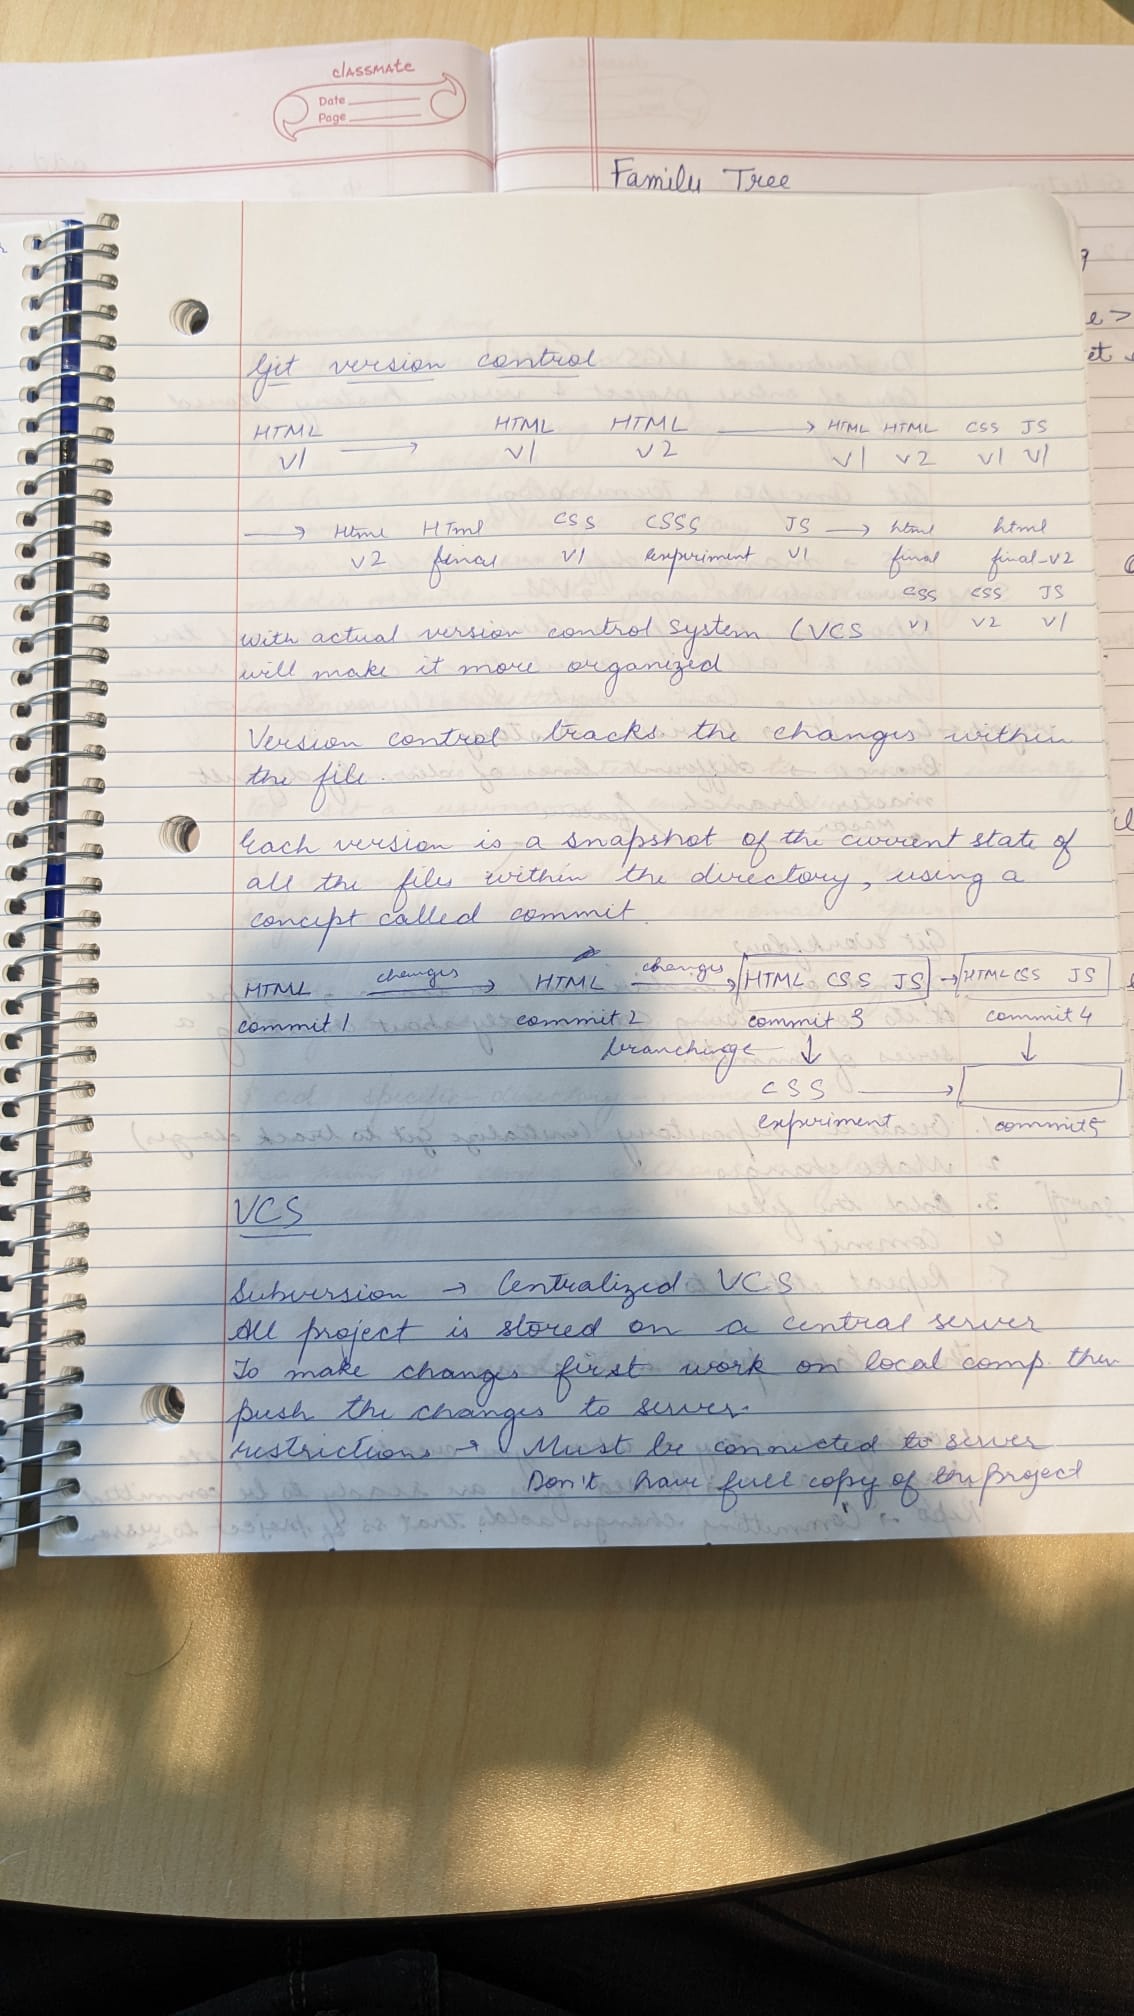 classmate
Date
Page
Family Tree
Git version control
HTML HTML HTML → HTML HTML CSS JS
v1 → v1 v2 v1 v2 v1 v1
→ Html HTml CSS CSSS JS → html html
v2 final v1 experiment v1 final final-v2
CSS CSS JS
with actual version control system (VCS v1 v2 v1
will make it more organized
Version control tracks the changes within
the file.
Each version is a snapshot of the current state of
all the files within the directory, using a
concept called commit.
HTML changes → HTML changes → HTML CSS JS → HTML CSS JS
commit 1 commit 2 commit 3 commit 4
branchinge ↓ ↓
CSS →
experiment commit5
VCS
Subversion → Centralized VCS
All project is stored on a central server
To make changes first work on local comp. then
push the changes to server.
restrictions → Must be connected to server
Don't have full copy of the project